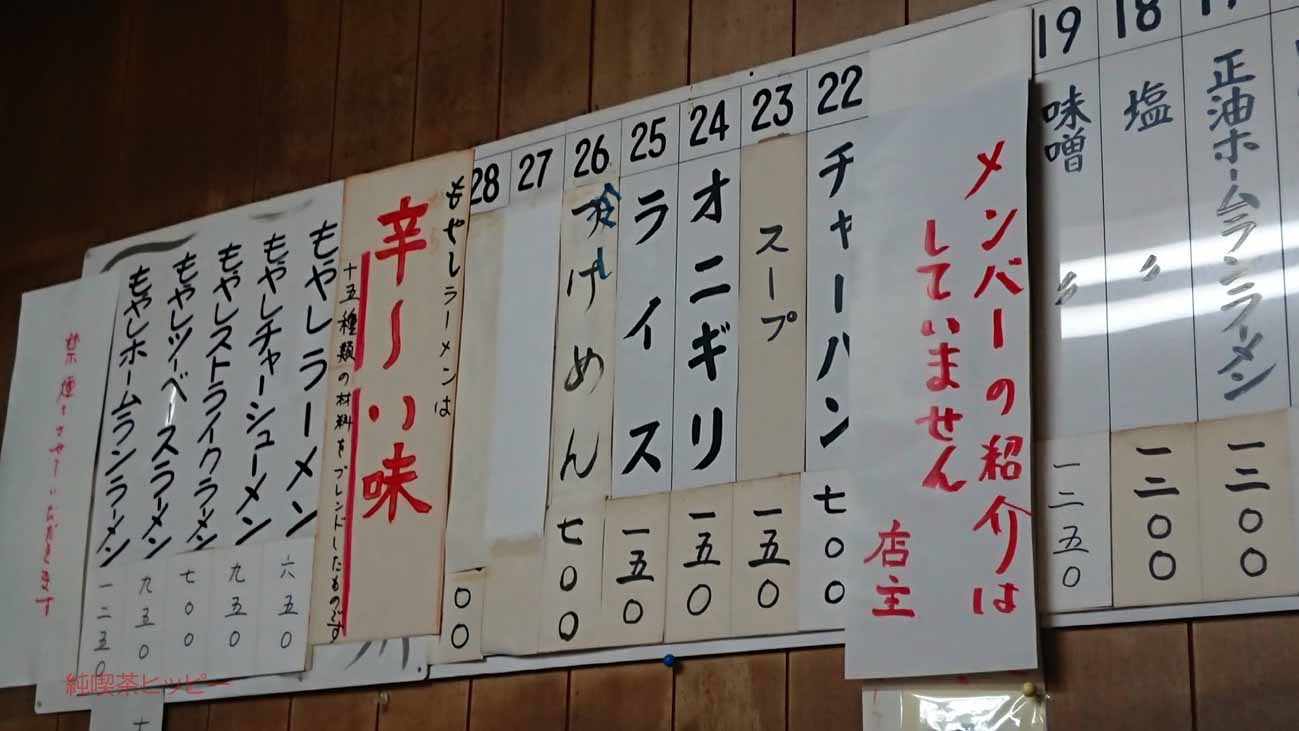 正油ホームランラーメン
一二〇〇
18
塩
〃
一二〇〇
19
味噌
〃
一二五〇
メンバーの紹介は
していません
店主
22
チャーハン
七〇〇
23
スープ
一五〇
24
オニギリ
一五〇
25
ライス
一五〇
26
冷し
つけめん
七〇〇
27
28
〇〇
もやしラーメンは
辛〜い味
十五種類の材料をブレンドしたものです
もやしラーメン
六五〇
もやしチャーシューメン
九五〇
もやしストライクラーメン
七〇〇
もやしツーベースラーメン
九五〇
もやしホームランラーメン
一二五〇
禁煙とさせていただきます
純喫茶ヒッピー